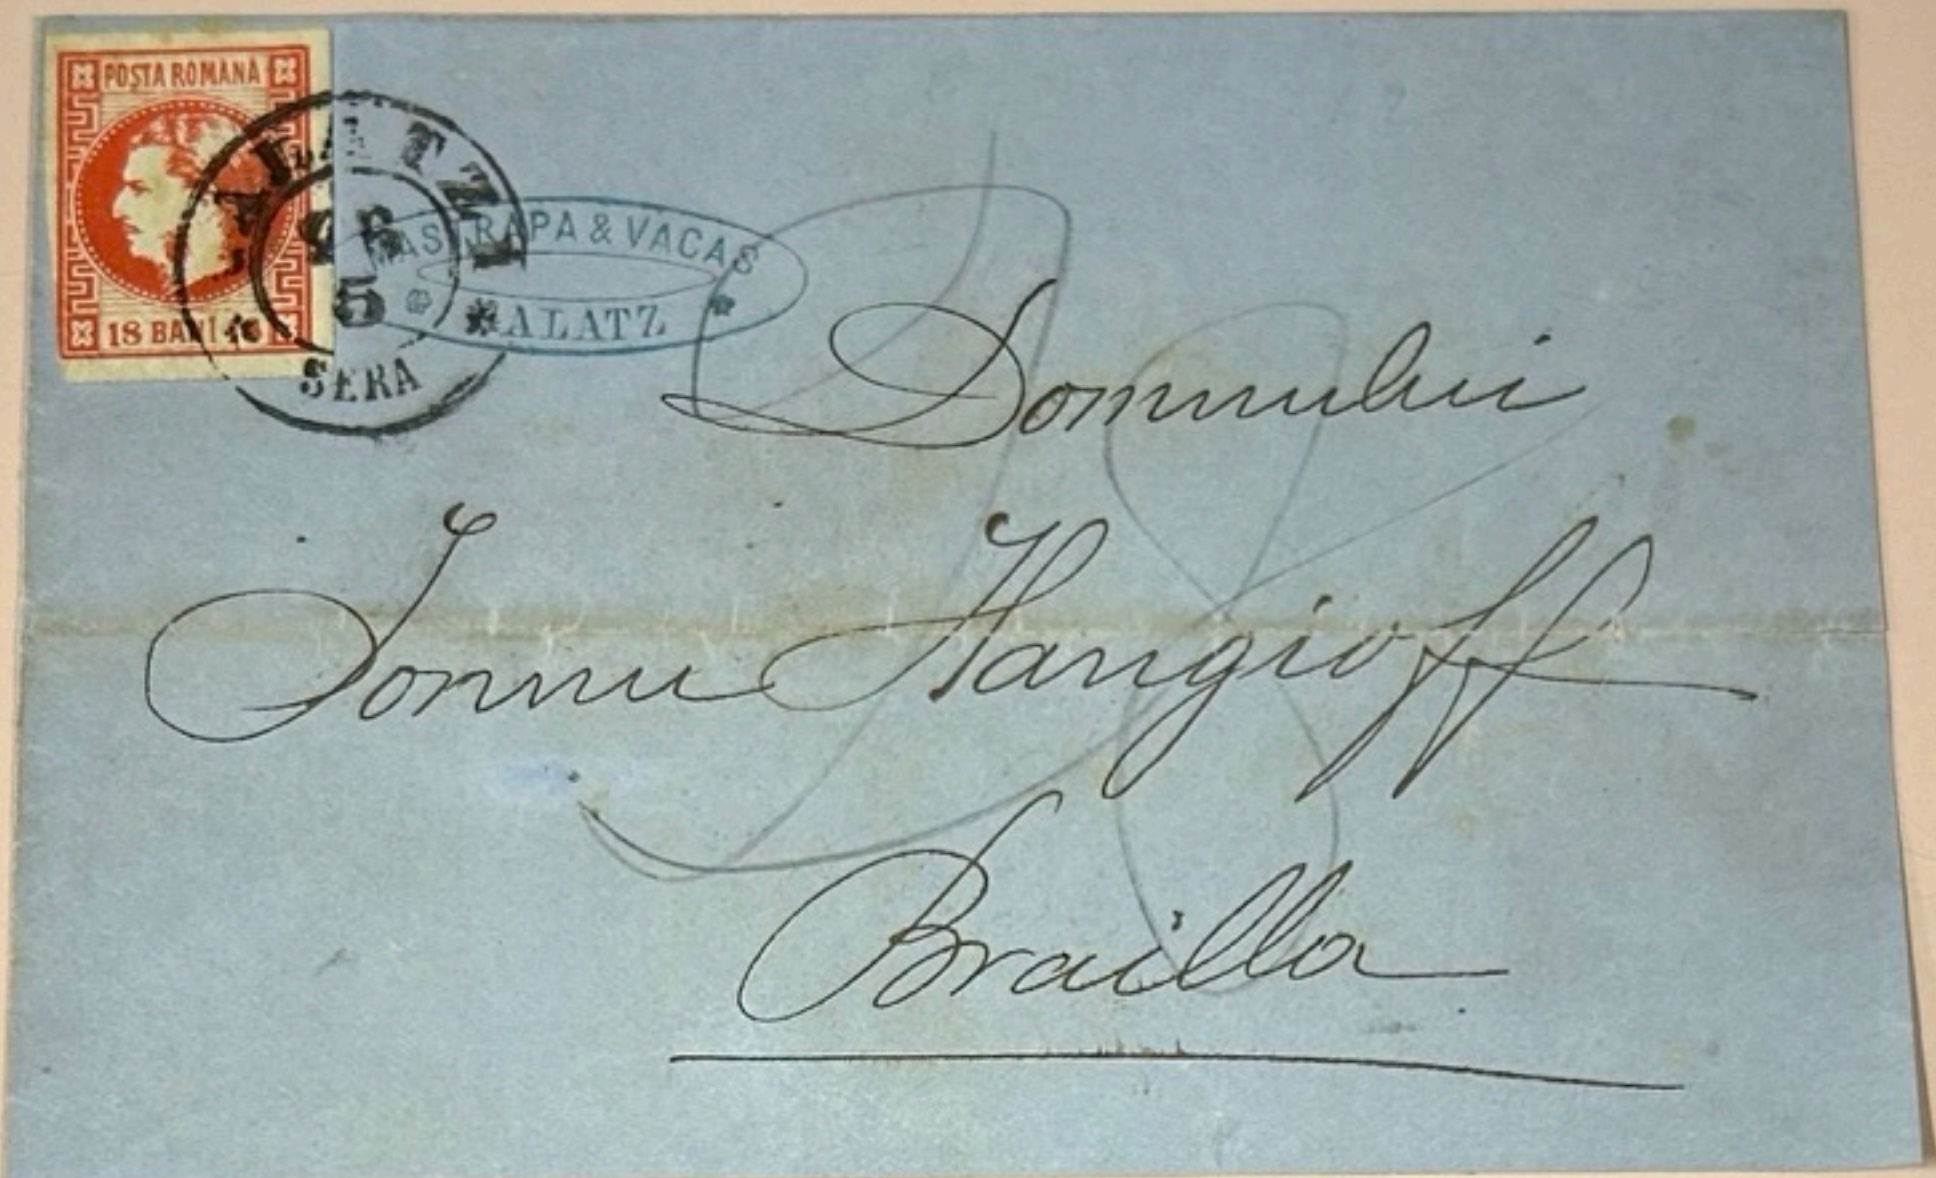 POSTA ROMANA
18 BANI 18
GALATZI
26
5
SERA
& VACAS
GALATZ
Domnului
Ionnu Hangioff
Brailla